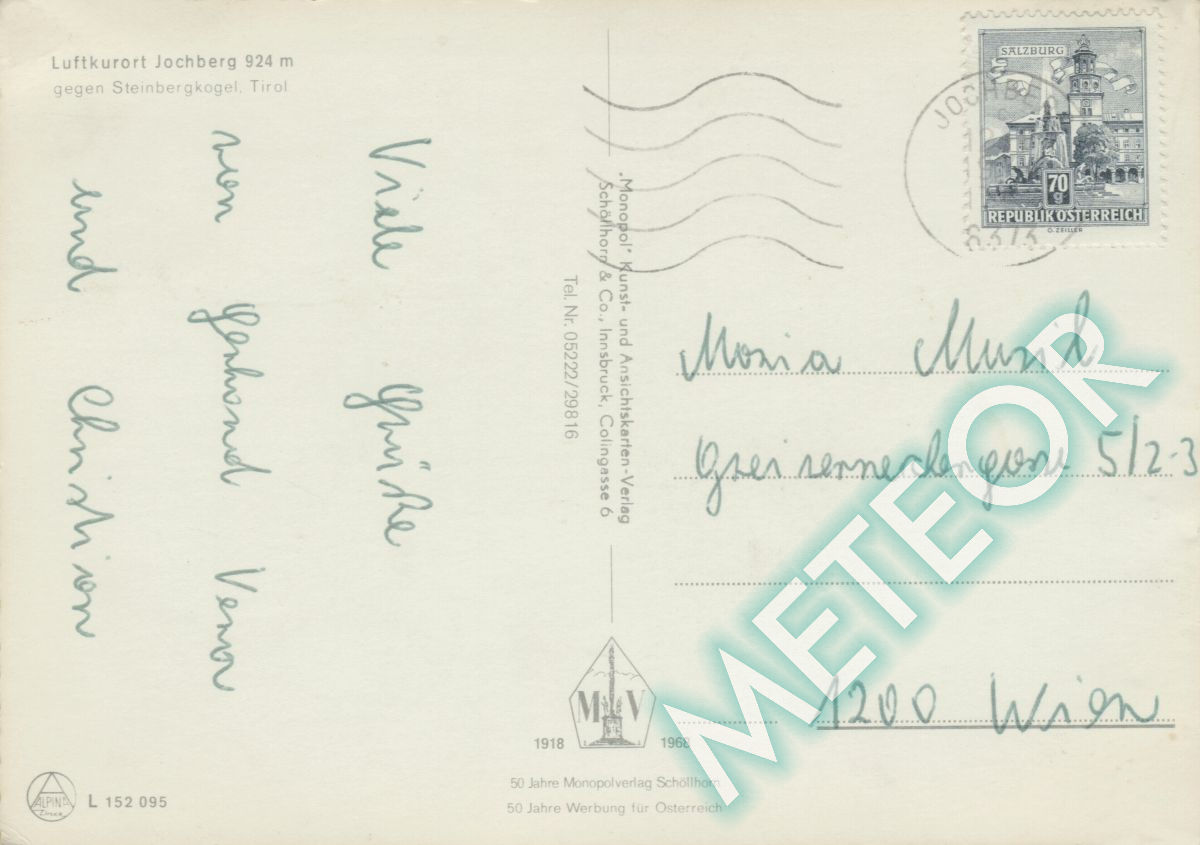 Luftkurort Jochberg 924 m
gegen Steinbergkogel, Tirol
Viele Grüße
von Gerhard Vena
und Christian
"Monopol" Kunst- und Ansichtskarten-Verlag
Schöllhorn & Co., Innsbruck, Colingasse 6
Tel. Nr. 05222/29816
SALZBURG
70
g
REPUBLIK ÖSTERREICH
O. ZEILLER
JOCHBE
6373
Maria Musil
5/2-3
1200 Wien
METEOR
M V
1918 1968
50 Jahre Monopolverlag Schöllhorn
50 Jahre Werbung für Österreich
ALPIN
L 152 095